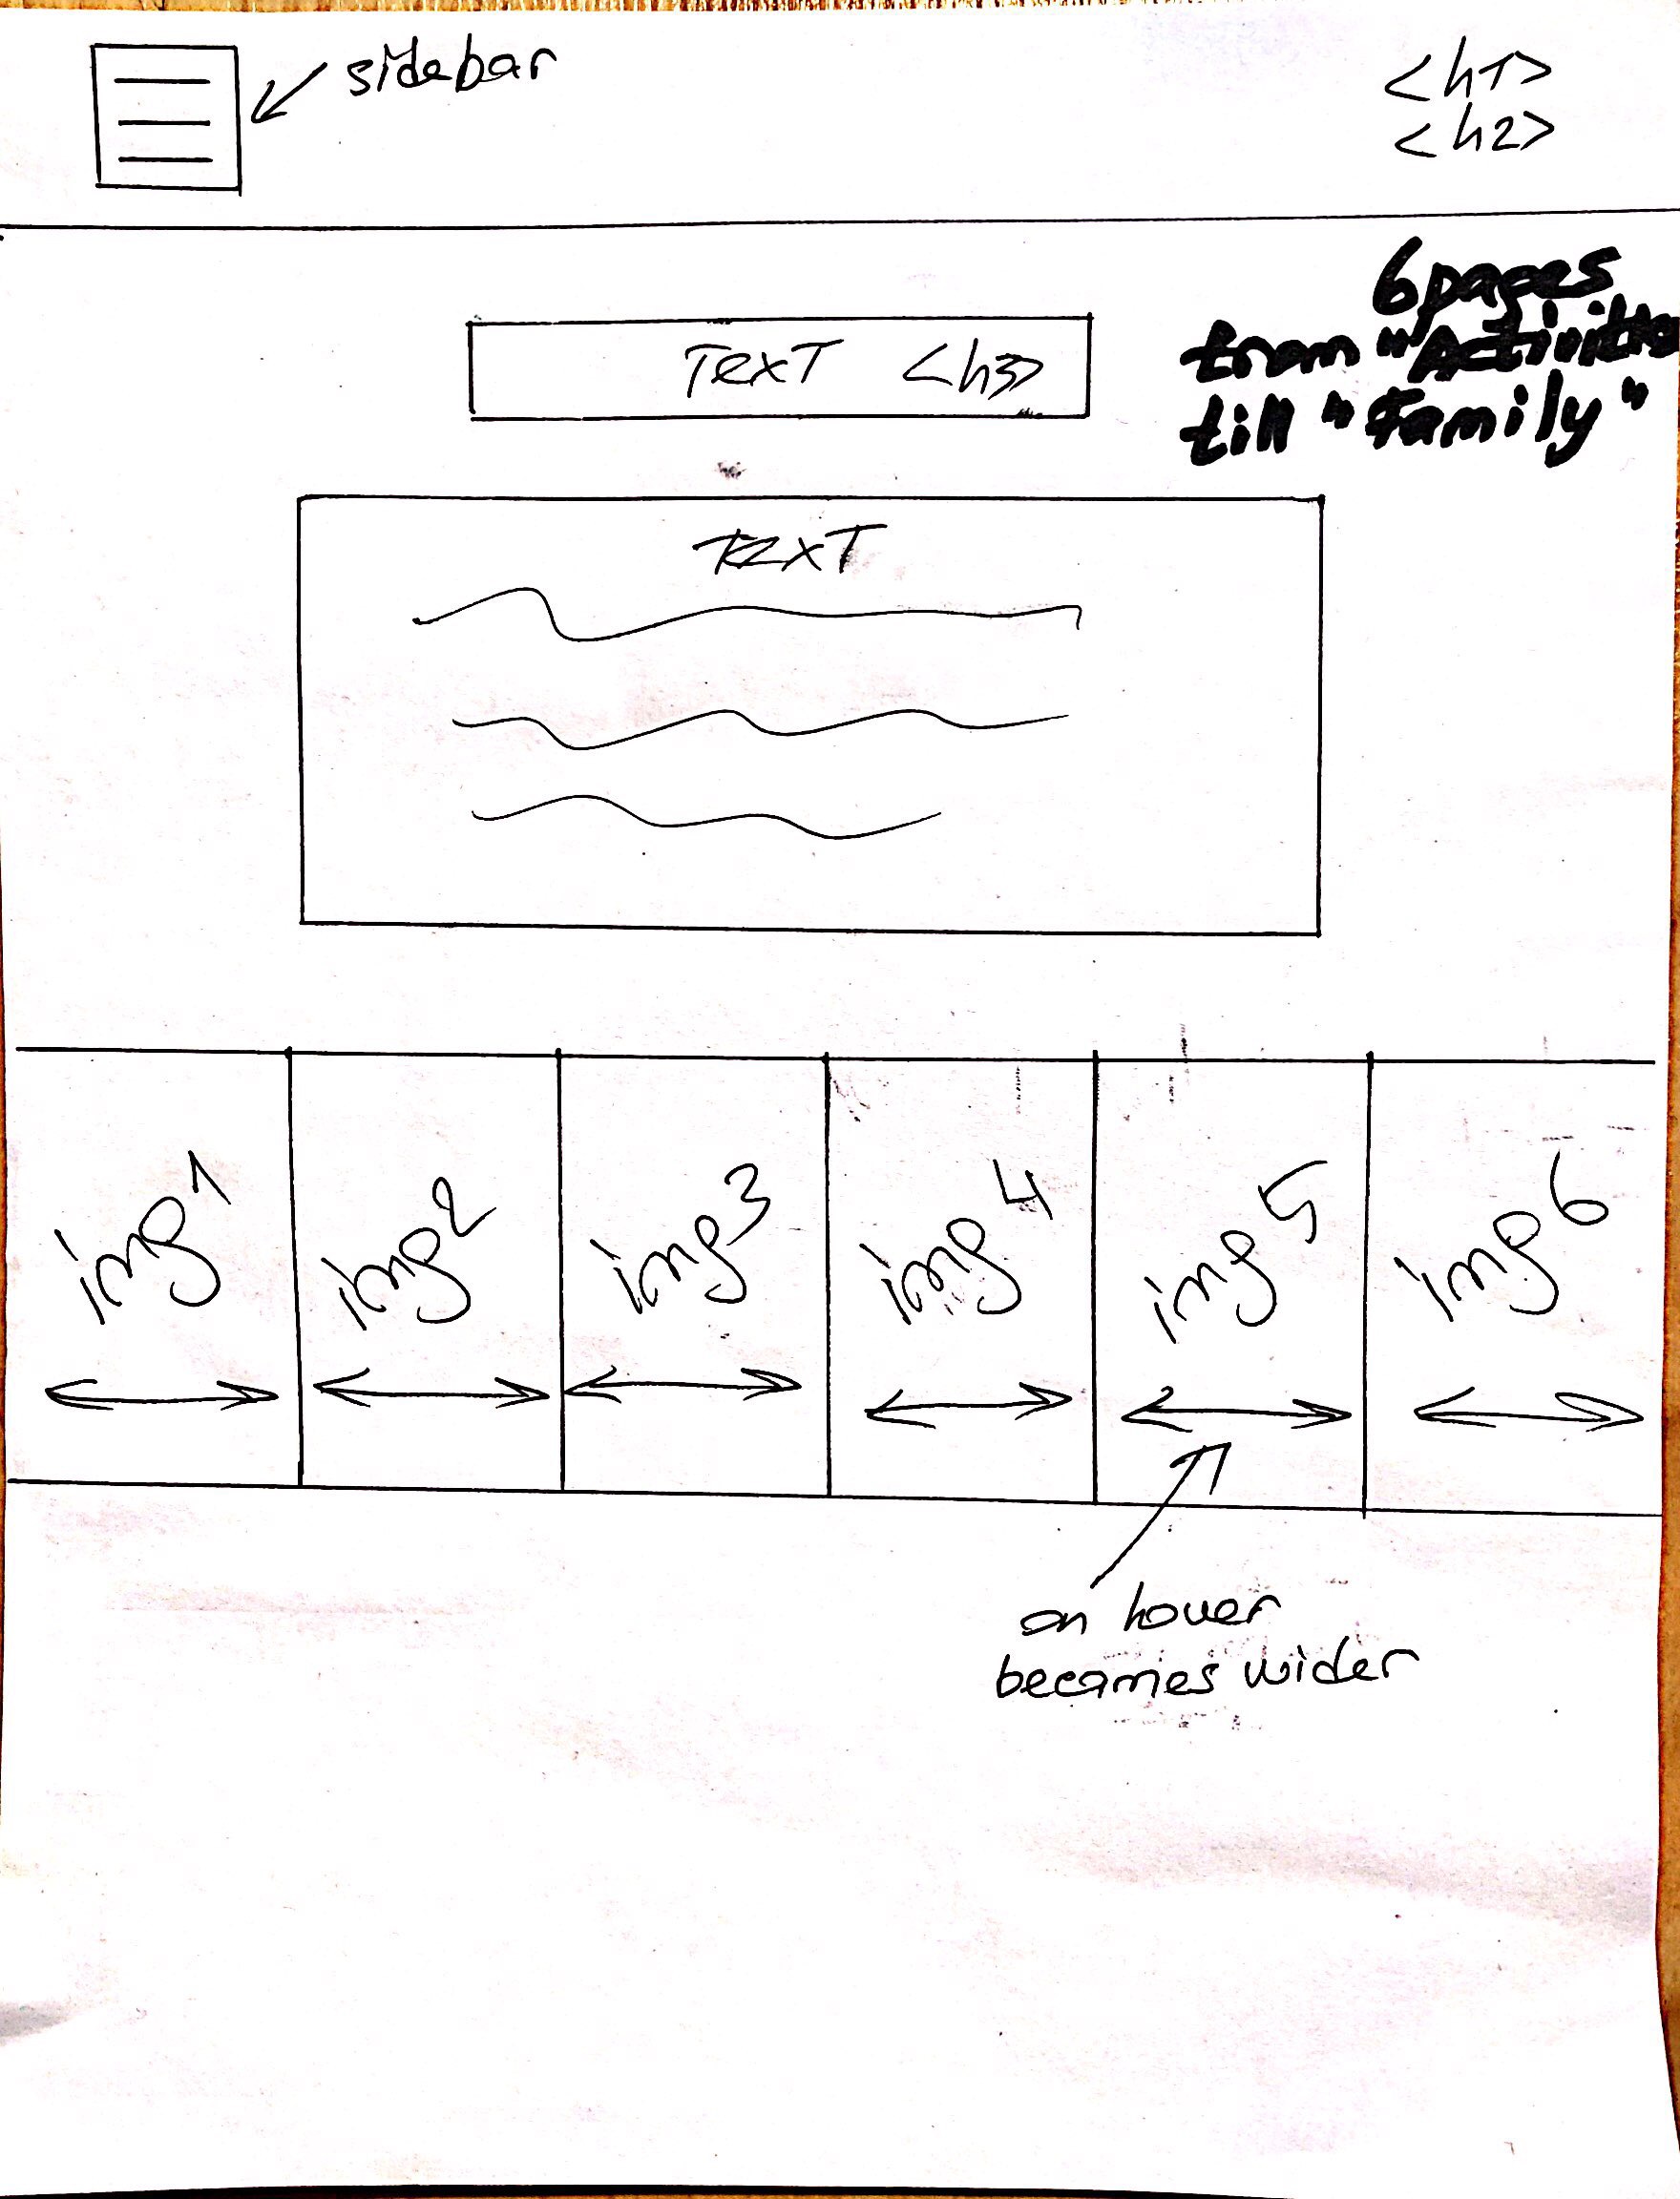 sidebar
<h1>
<h2>
6 pages
from "Activities
till "Family"
Text <h3>
TEXT
img1
img2
img3
img4
img5
img6
on hover
becames wider